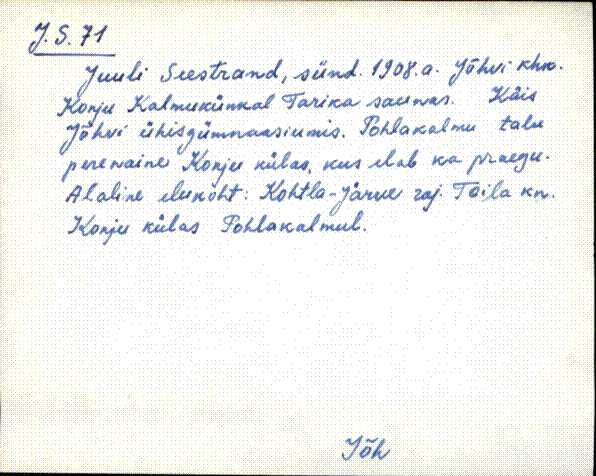 J. S. 71
Juuli Seestrand, sünd. 1908.a. Jõhvi khk.
Konju Kalmukünkal Tarika saunas. Käis
Jõhvi ühisgümnaasiumis. Pohlakalmu talu
perenaine Konju külas, kus elab ka praegu.
Alaline elukoht: Kohtla-Järve raj. Toila kn.
Konju külas Pohlakalmul.
Jõh